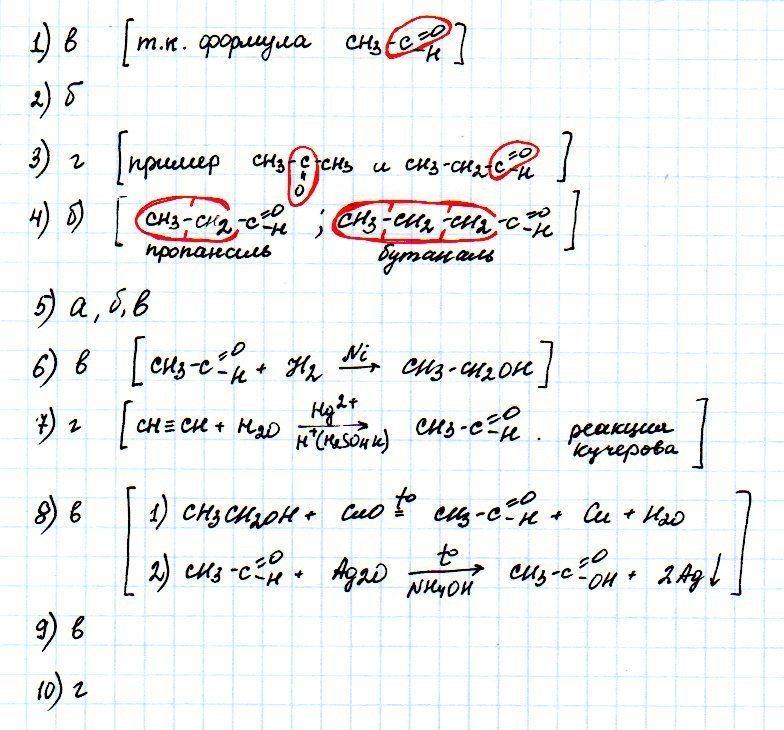 1) в [т.к. формула CH3-C=O-H]
2) б
3) г [пример CH3-C-CH3 и CH3-CH2-C=O-H]
=O
4) б) [CH3-CH2-C=O-H ; CH3-CH2-CH2-C=O-H]
пропаналь бутаналь
5) а, б, в
6) в [CH3-C=O-H + H2 Ni → CH3-CH2OH]
7) г [CH≡CH + H2O Hg2+ H+(H2SO4 к) → CH3-C=O-H. реакция
Кучерова]
8) в [1) CH3CH2OH + CuO t° = CH3-C=O-H + Cu + H2O
2) CH3-C=O-H + Ag2O t° NH4OH → CH3-C=O-OH + 2Ag↓]
9) в
10) г